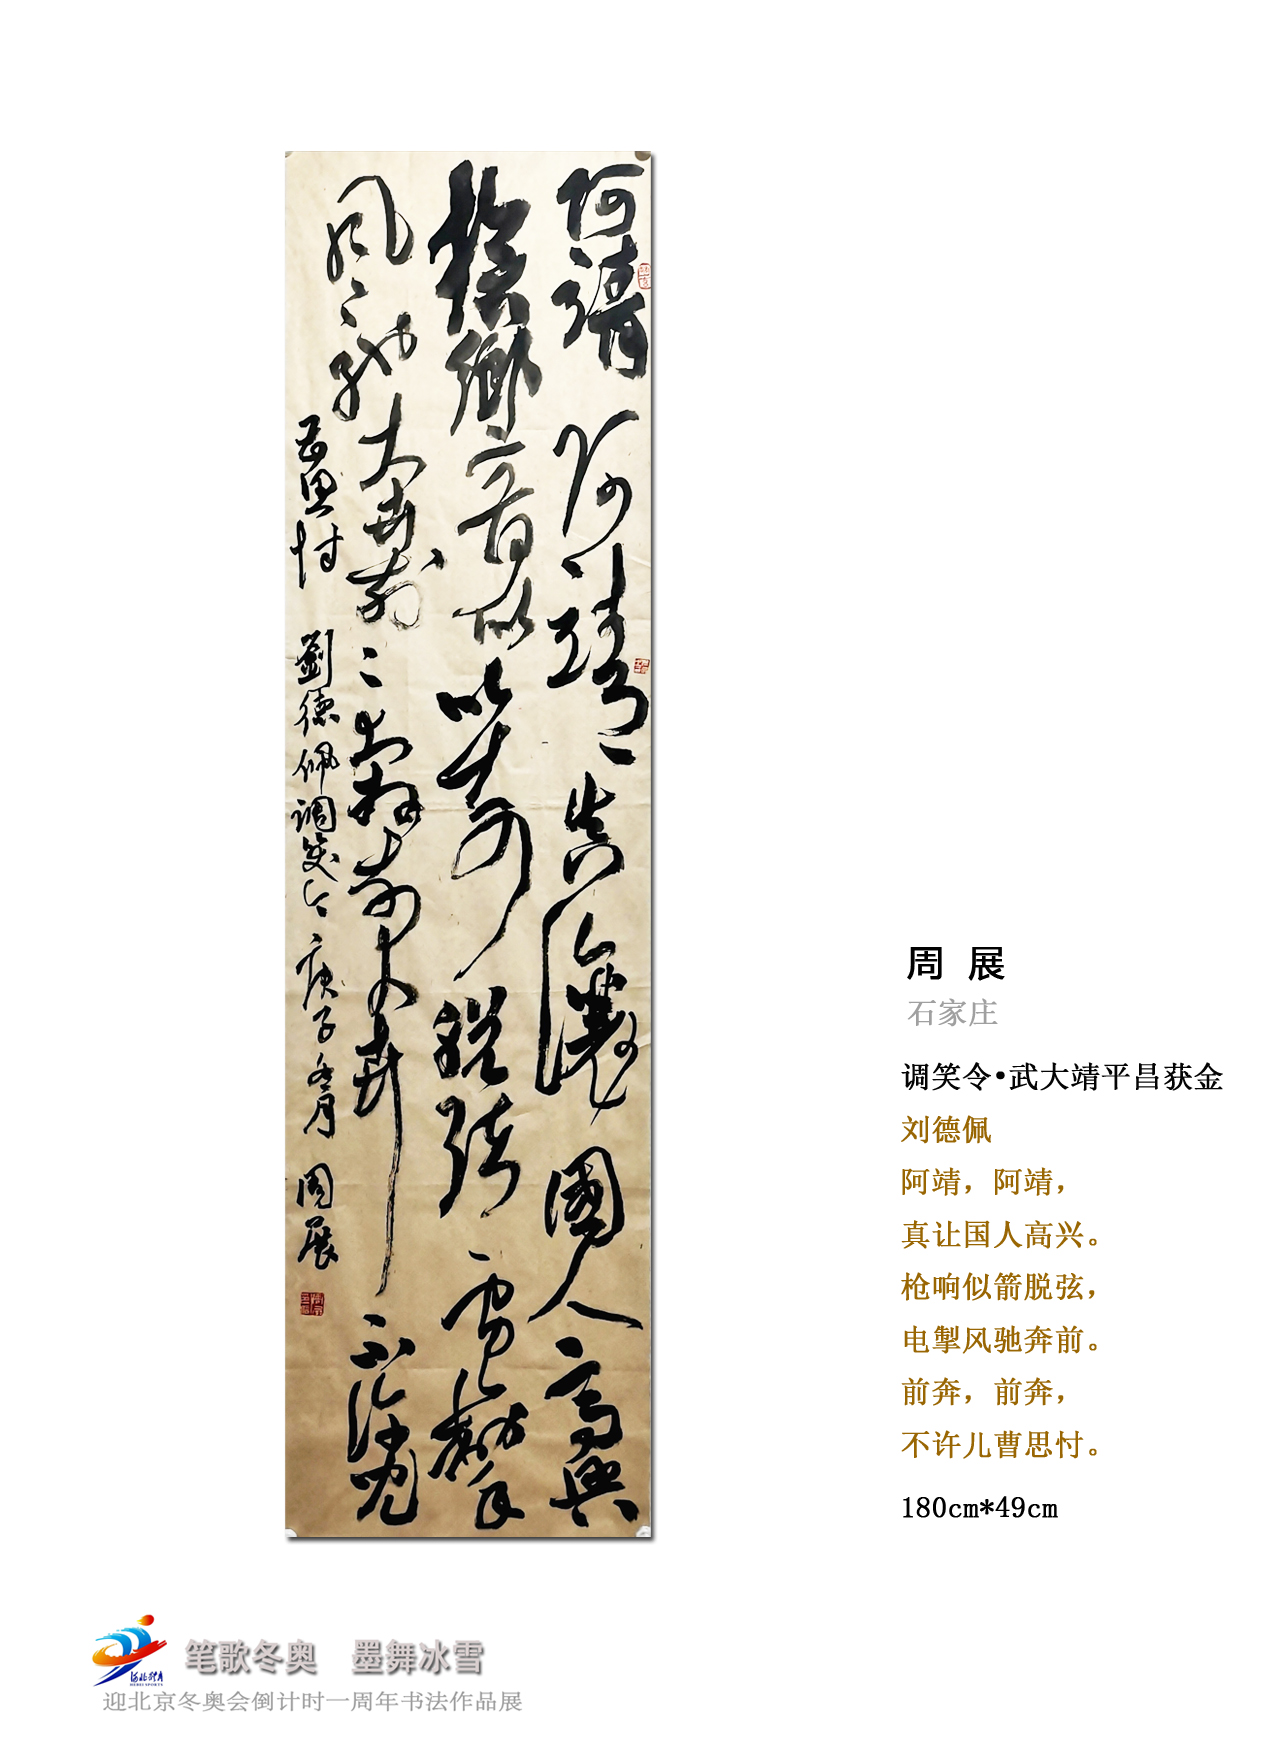 阿靖阿靖真讓國人高興
槍響似箭脱弦電掣
風馳奔前前奔前奔不許兒
曹思忖 劉德佩調笑令 庚子冬月 周展
周 展
石家庄
调笑令•武大靖平昌获金
刘德佩
阿靖，阿靖，
真让国人高兴。
枪响似箭脱弦，
电掣风驰奔前。
前奔，前奔，
不许儿曹思忖。
180cm*49cm
河北体育
HEBEI SPORTS
笔歌冬奥 墨舞冰雪
迎北京冬奥会倒计时一周年书法作品展